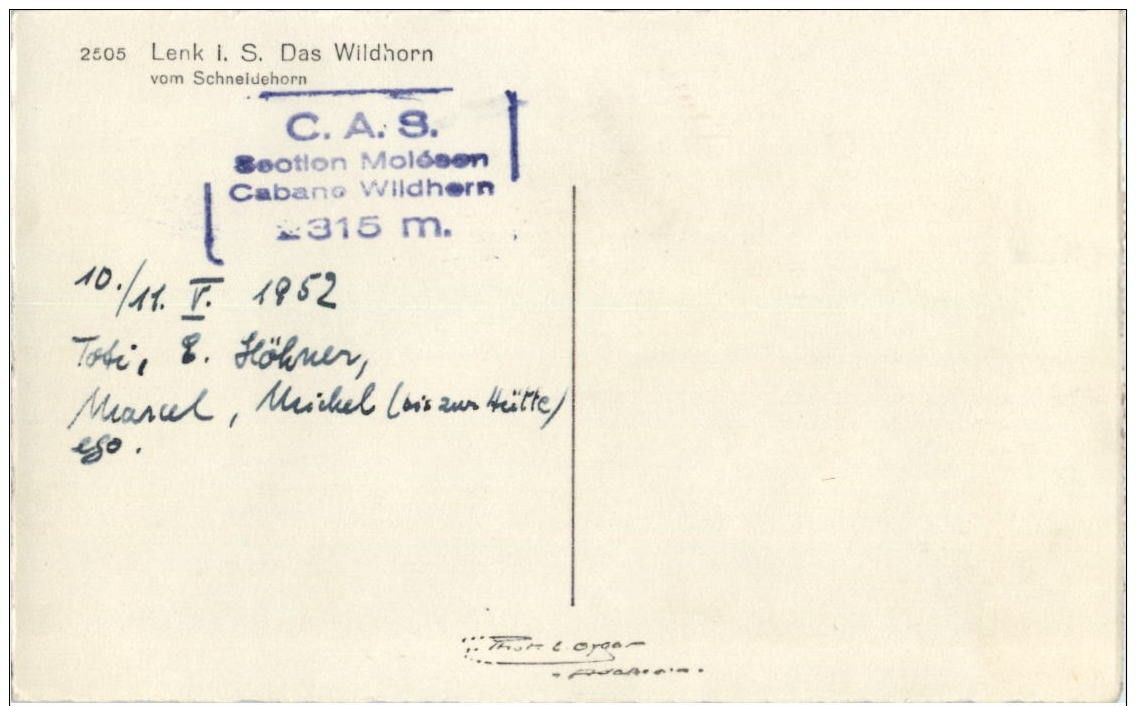 2505 Lenk i. S. Das Wildhorn
vom Schneidehorn
C. A. S.
Section Moléson
Cabane Wildhorn
2315 m.
10./11. V. 1952
Toti, E. Höhner,
Marcel, Michel (bis zur Hütte)
ego.
Phot. L. Gyger